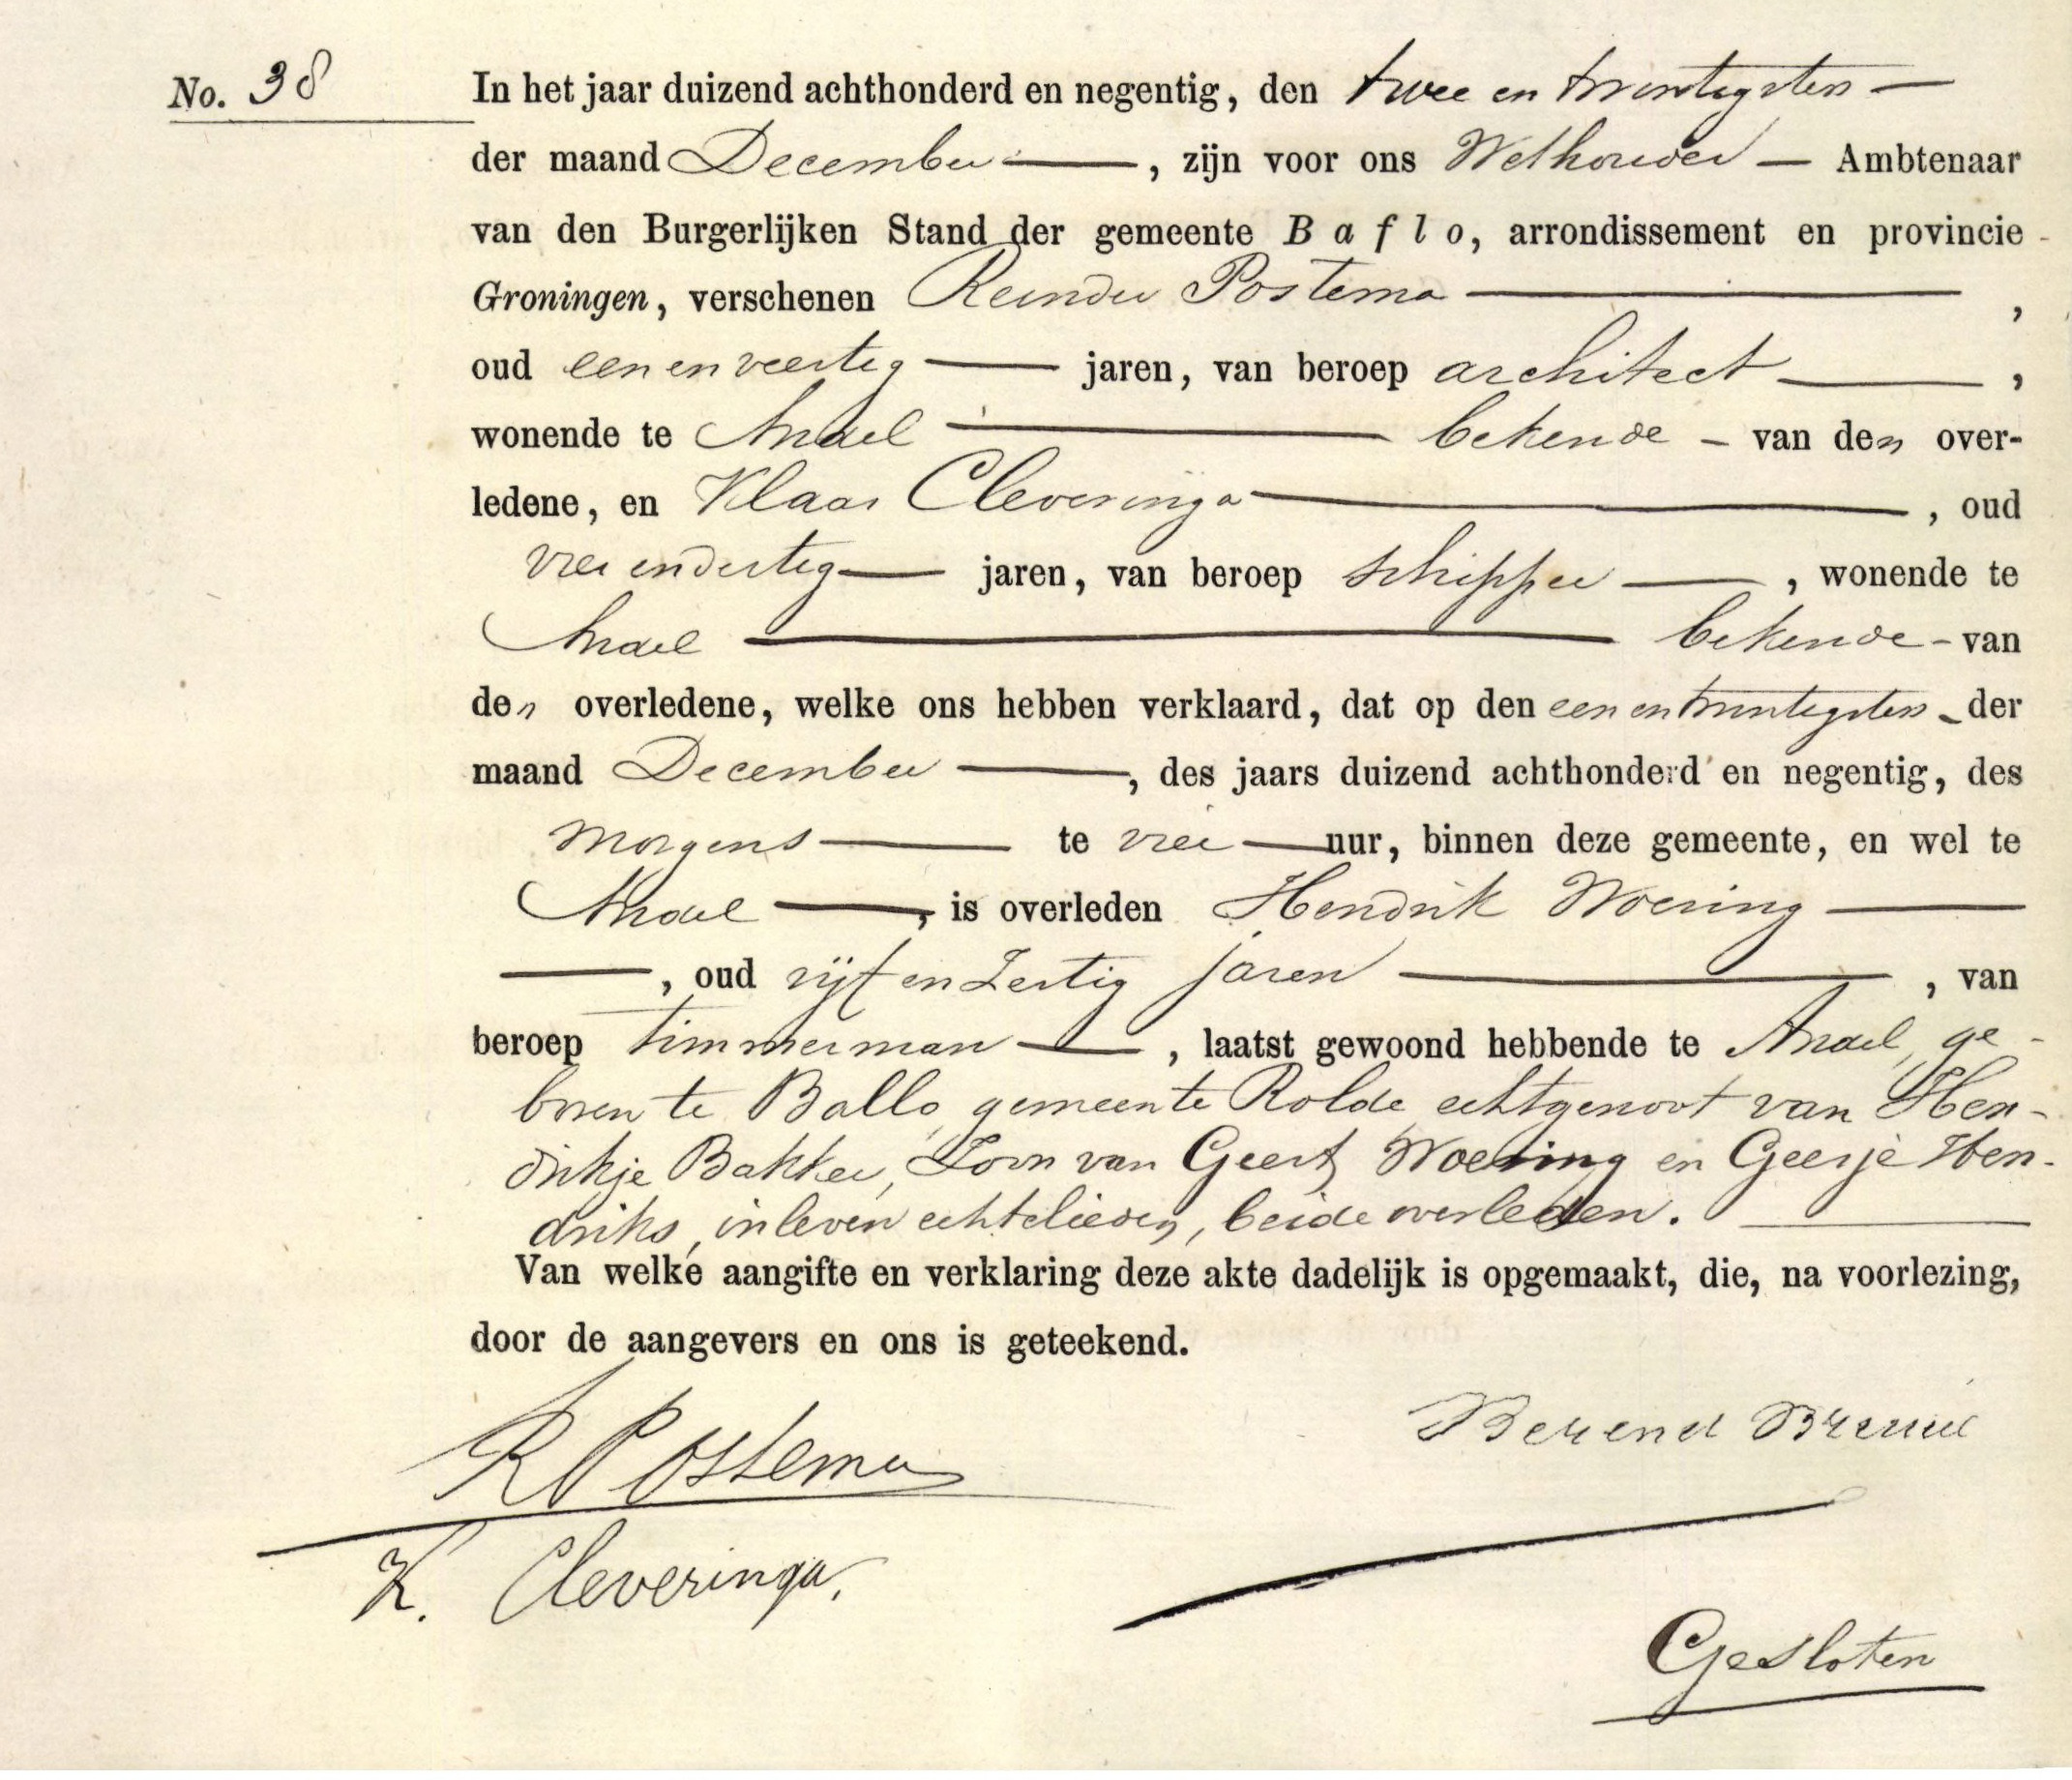 No. 38
In het jaar duizend achthonderd en negentig, den twee en twintigsten —
der maand December —, zijn voor ons Wethouder — Ambtenaar
van den Burgerlijken Stand der gemeente Baflo, arrondissement en provincie
Groningen, verschenen Reinder Postema —,
oud een en veertig — jaren, van beroep architect —,
wonende te Andel — bekende — van den over-
ledene, en Klaas Cleveringa —, oud
vier en dertig — jaren, van beroep schipper —, wonende te
Andel — bekende — van
den overledene, welke ons hebben verklaard, dat op den een en twintigsten — der
maand December —, des jaars duizend achthonderd en negentig, des
morgens — te vier — uur, binnen deze gemeente, en wel te
Andel —, is overleden Hendrik Woering —
—, oud vijf en Zestig jaren —, van
beroep timmerman —, laatst gewoond hebbende te Andel, ge-
boren te Ballo, gemeente Rolde echtgenoot van Hen-
drikje Bakker, Zoon van Geert Woering en Geesje Hen-
driks, in leven echtelieden, beide overleden. —
Van welke aangifte en verklaring deze akte dadelijk is opgemaakt, die, na voorlezing,
door de aangevers en ons is geteekend.
R Postema
Berend
K. Cleveringa.
Gesloten